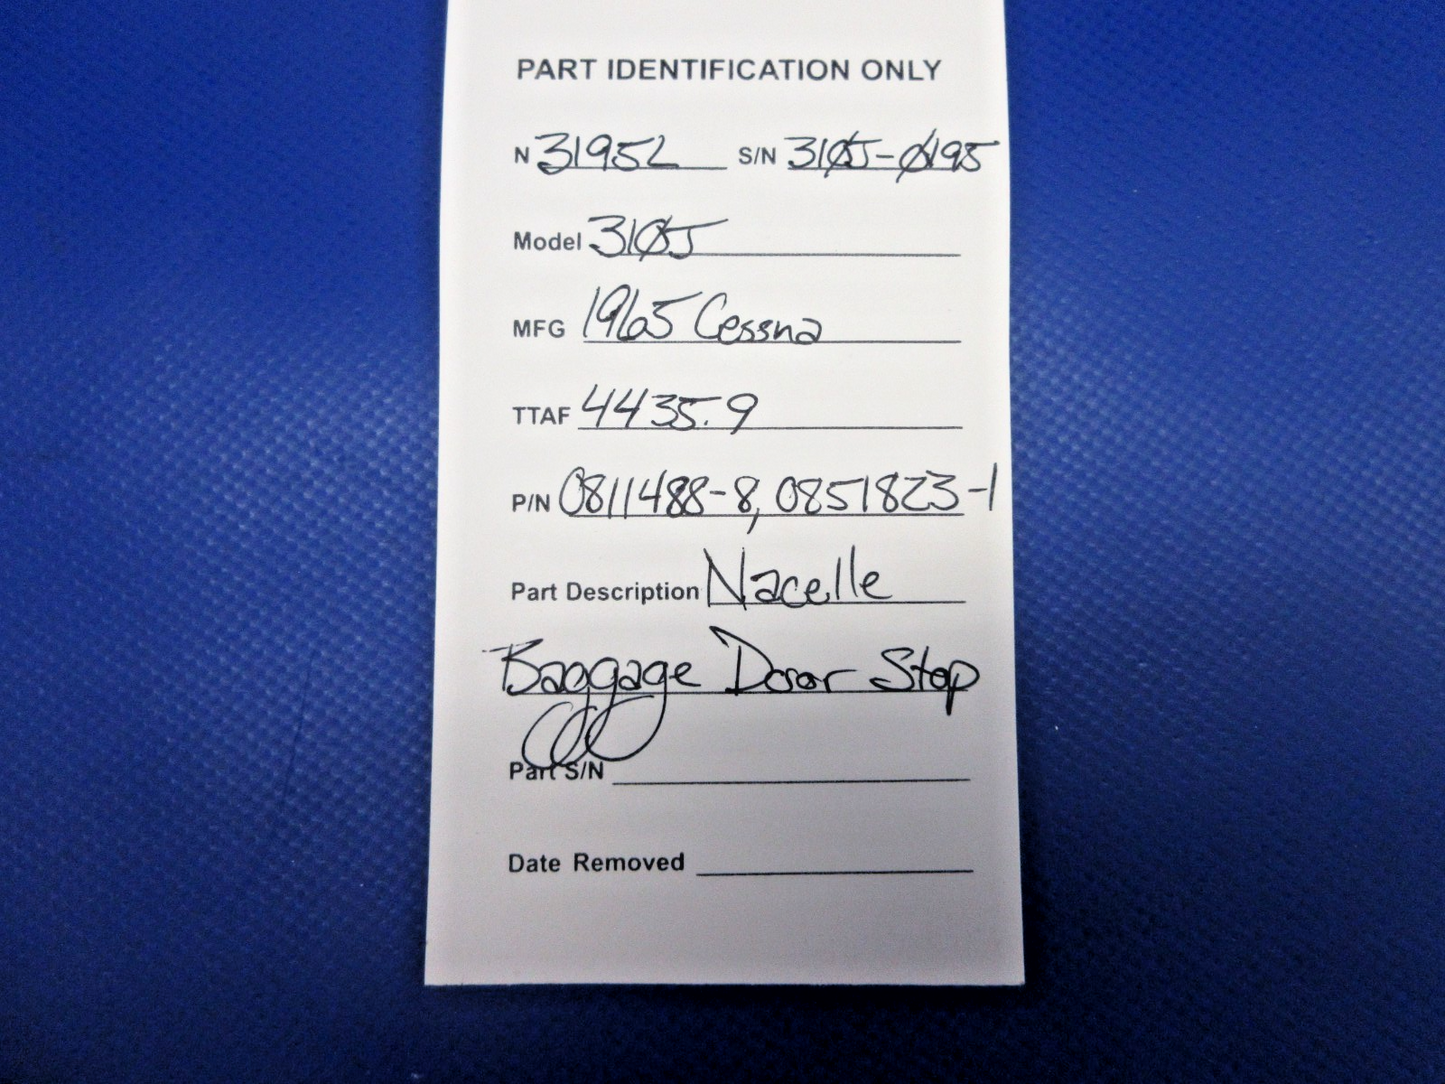 PART IDENTIFICATION ONLY
N 3195L S/N 310J-0195
Model 310J
MFG 1965 Cessna
TTAF 4435.9
P/N 0811488-8, 0851823-1
Part Description Nacelle
Baggage Door Stop
Part S/N
Date Removed